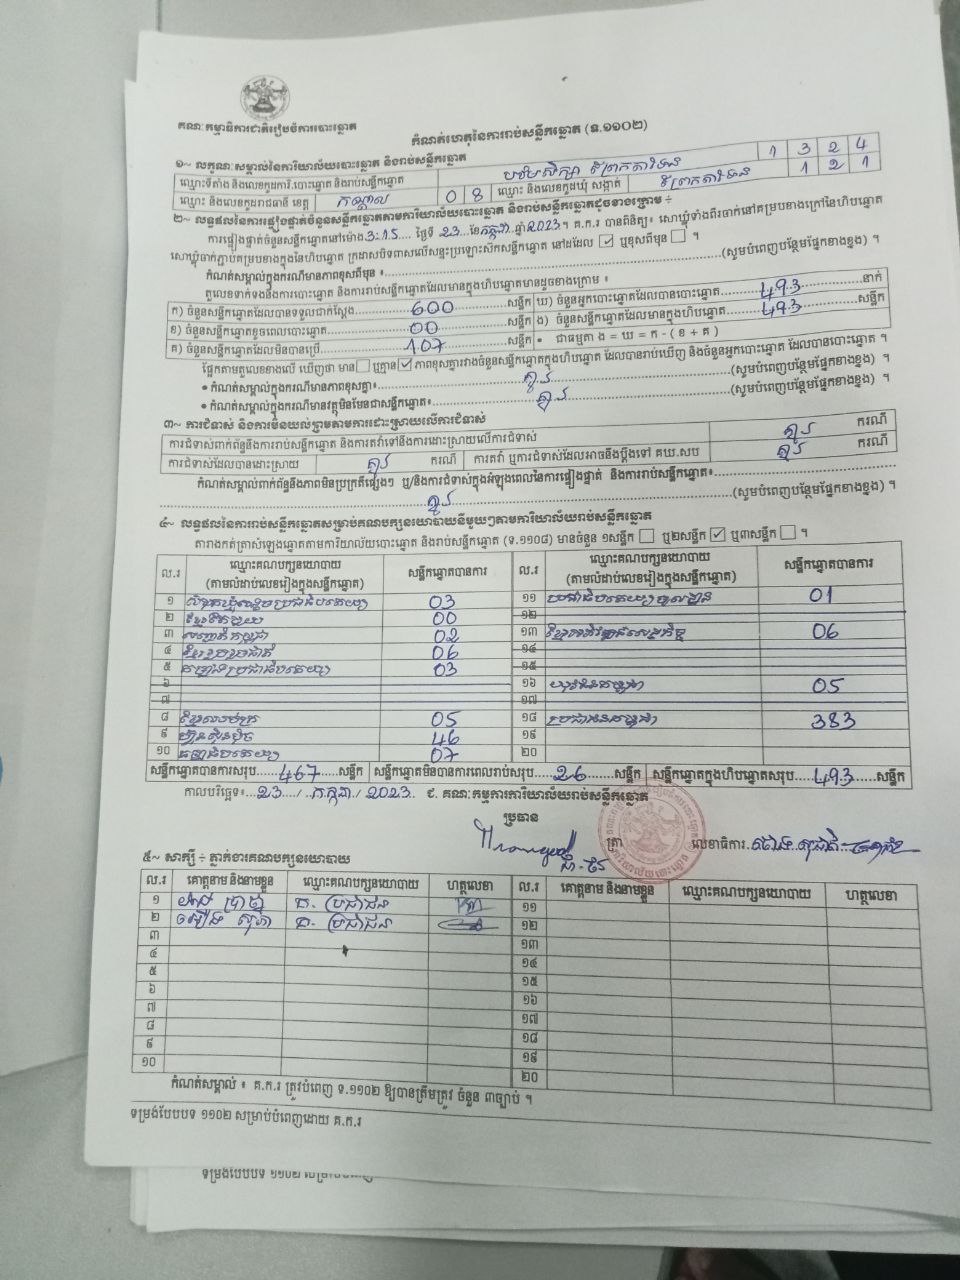 គណៈកម្មាធិការជាតិរៀបចំការបោះឆ្នោត
កំណត់ហេតុនៃការរាប់សន្លឹកឆ្នោត (ទ.១១០២)
១~ លក្ខណៈសម្គាល់នៃការិយាល័យបោះឆ្នោត និងរាប់សន្លឹកឆ្នោត
ឈ្មោះទីតាំង និងលេខកូដការិ.បោះឆ្នោតនិងរាប់សន្លឹកឆ្នោត 1 3 2 4
ឈ្មោះ និងលេខកូដរាជធានី ខេត្ត កណ្តាល 0 8 ឈ្មោះ និងលេខកូដឃុំ សង្កាត់ 1 2 1
២~ លទ្ធផលនៃការផ្ទៀងផ្ទាត់ចំនួនសន្លឹកឆ្នោតតាមការិយាល័យបោះឆ្នោត និងរាប់សន្លឹកឆ្នោតដូចខាងក្រោម ÷
ការផ្ទៀងផ្ទាត់ចំនួនសន្លឹកឆ្នោតនៅម៉ោង 3:15 ថ្ងៃទី 23 ខែ កក្កដា ឆ្នាំ 2023។ គ.ក.រ បានពិនិត្យ៖ សោឃ្លុំទាំងពីរចាក់នៅគម្របខាងក្រៅនៃហិបឆ្នោត
សោឃ្លុំចាក់ភ្ជាប់គម្របខាងក្នុងនៃហិបឆ្នោត ក្រដាសបិទពាសលើសន្ទះប្រឡោះសិកសន្លឹកឆ្នោត នៅដដែល ☑ ឬខុសពីមុន ☐ ។
កំណត់សម្គាល់ក្នុងករណីមានភាពខុសពីមុន ៖ (សូមបំពេញបន្ថែមផ្នែកខាងខ្នង) ។
តួលេខទាក់ទងនឹងការបោះឆ្នោត និងការរាប់សន្លឹកឆ្នោតដែលមានក្នុងហិបឆ្នោតមានដូចខាងក្រោម ៖
ក) ចំនួនសន្លឹកឆ្នោតដែលបានទទួលជាក់ស្តែង 600 សន្លឹក ឃ) ចំនួនអ្នកបោះឆ្នោតដែលបានបោះឆ្នោត 493 នាក់
ខ) ចំនួនសន្លឹកឆ្នោតខូចពេលបោះឆ្នោត 00 សន្លឹក ង) ចំនួនសន្លឹកឆ្នោតដែលមានក្នុងហិបឆ្នោត 493 សន្លឹក
គ) ចំនួនសន្លឹកឆ្នោតដែលមិនបានប្រើ 107 សន្លឹក • ជាធម្មតា ង = ឃ = ក - ( ខ + គ )
ផ្អែកតាមតួលេខខាងលើ ឃើញថា មាន ☐ ឬគ្មាន ☑ ភាពខុសគ្នារវាងចំនួនសន្លឹកឆ្នោតក្នុងហិបឆ្នោត ដែលបានរាប់ឃើញ និងចំនួនអ្នកបោះឆ្នោត ដែលបានបោះឆ្នោត ។
• កំណត់សម្គាល់ក្នុងករណីមានភាពខុសគ្នា៖ គ្មាន (សូមបំពេញបន្ថែមផ្នែកខាងខ្នង) ។
• កំណត់សម្គាល់ក្នុងករណីមានវត្ថុមិនមែនជាសន្លឹកឆ្នោត៖ គ្មាន (សូមបំពេញបន្ថែមផ្នែកខាងខ្នង) ។
៣~ ការជំទាស់ និងការមិនយល់ព្រមតាមការដោះស្រាយលើការជំទាស់
ការជំទាស់ពាក់ព័ន្ធនឹងការរាប់សន្លឹកឆ្នោត និងការតវ៉ាទៅនឹងការដោះស្រាយលើការជំទាស់ គ្មាន ករណី
ការជំទាស់ដែលបានដោះស្រាយ គ្មាន ករណី ការតវ៉ា ឬការជំទាស់ដែលអាចនឹងប្តឹងទៅ គឃ.សប គ្មាន ករណី
កំណត់សម្គាល់ពាក់ព័ន្ធនឹងភាពមិនប្រក្រតីផ្សេងៗ ឬ/និងការជំទាស់ក្នុងអំឡុងពេលនៃការផ្ទៀងផ្ទាត់ និងការរាប់សន្លឹកឆ្នោត៖
គ្មាន (សូមបំពេញបន្ថែមផ្នែកខាងខ្នង) ។
៤~ លទ្ធផលនៃការរាប់សន្លឹកឆ្នោតសម្រាប់គណបក្សនយោបាយនីមួយៗតាមការិយាល័យរាប់សន្លឹកឆ្នោត
តារាងកត់ត្រាសំឡេងឆ្នោតតាមការិយាល័យបោះឆ្នោត និងរាប់សន្លឹកឆ្នោត (ទ.១១០៨) មានចំនួន ១សន្លឹក ☐ ឬ២សន្លឹក ☑ ឬ៣សន្លឹក ☐ ។
ល.រ ឈ្មោះគណបក្សនយោបាយ (តាមលំដាប់លេខរៀងក្នុងសន្លឹកឆ្នោត) សន្លឹកឆ្នោតបានការ ល.រ ឈ្មោះគណបក្សនយោបាយ (តាមលំដាប់លេខរៀងក្នុងសន្លឹកឆ្នោត) សន្លឹកឆ្នោតបានការ
១ 03 ១១ 01
២ 00 ១២
៣ 02 ១៣ 06
៤ 06 ១៤
៥ 03 ១៥
៦ ១៦ 05
៧ ១៧
៨ 05 ១៨ ប្រជាជនកម្ពុជា 383
៩ ហ្វ៊ុនស៊ិនប៉ិច 46 ១៩
១០ 07 ២០
សន្លឹកឆ្នោតបានការសរុប 467 សន្លឹក សន្លឹកឆ្នោតមិនបានការពេលរាប់សរុប 26 សន្លឹក សន្លឹកឆ្នោតក្នុងហិបឆ្នោតសរុប 493 សន្លឹក
កាលបរិច្ឆេទ៖ 23 / កក្កដា / 2023 ជ. គណៈកម្មការការិយាល័យរាប់សន្លឹកឆ្នោត
ប្រធាន
ត្រា លេខាធិការ
៥~ សាក្សី ÷ ភ្នាក់ងារគណបក្សនយោបាយ
ល.រ គោត្តនាម និងនាមខ្លួន ឈ្មោះគណបក្សនយោបាយ ហត្ថលេខា ល.រ គោត្តនាម និងនាមខ្លួន ឈ្មោះគណបក្សនយោបាយ ហត្ថលេខា
១ គ. ប្រជាជន ១១
២ គ. ប្រជាជន ១២
៣ ១៣
៤ ១៤
៥ ១៥
៦ ១៦
៧ ១៧
៨ ១៨
៩ ១៩
១០ ២០
កំណត់សម្គាល់ ៖ គ.ក.រ ត្រូវបំពេញ ទ.១១០២ ឱ្យបានត្រឹមត្រូវ ចំនួន ៣ច្បាប់ ។
ទម្រង់បែបបទ ១១០២ សម្រាប់បំពេញដោយ គ.ក.រ